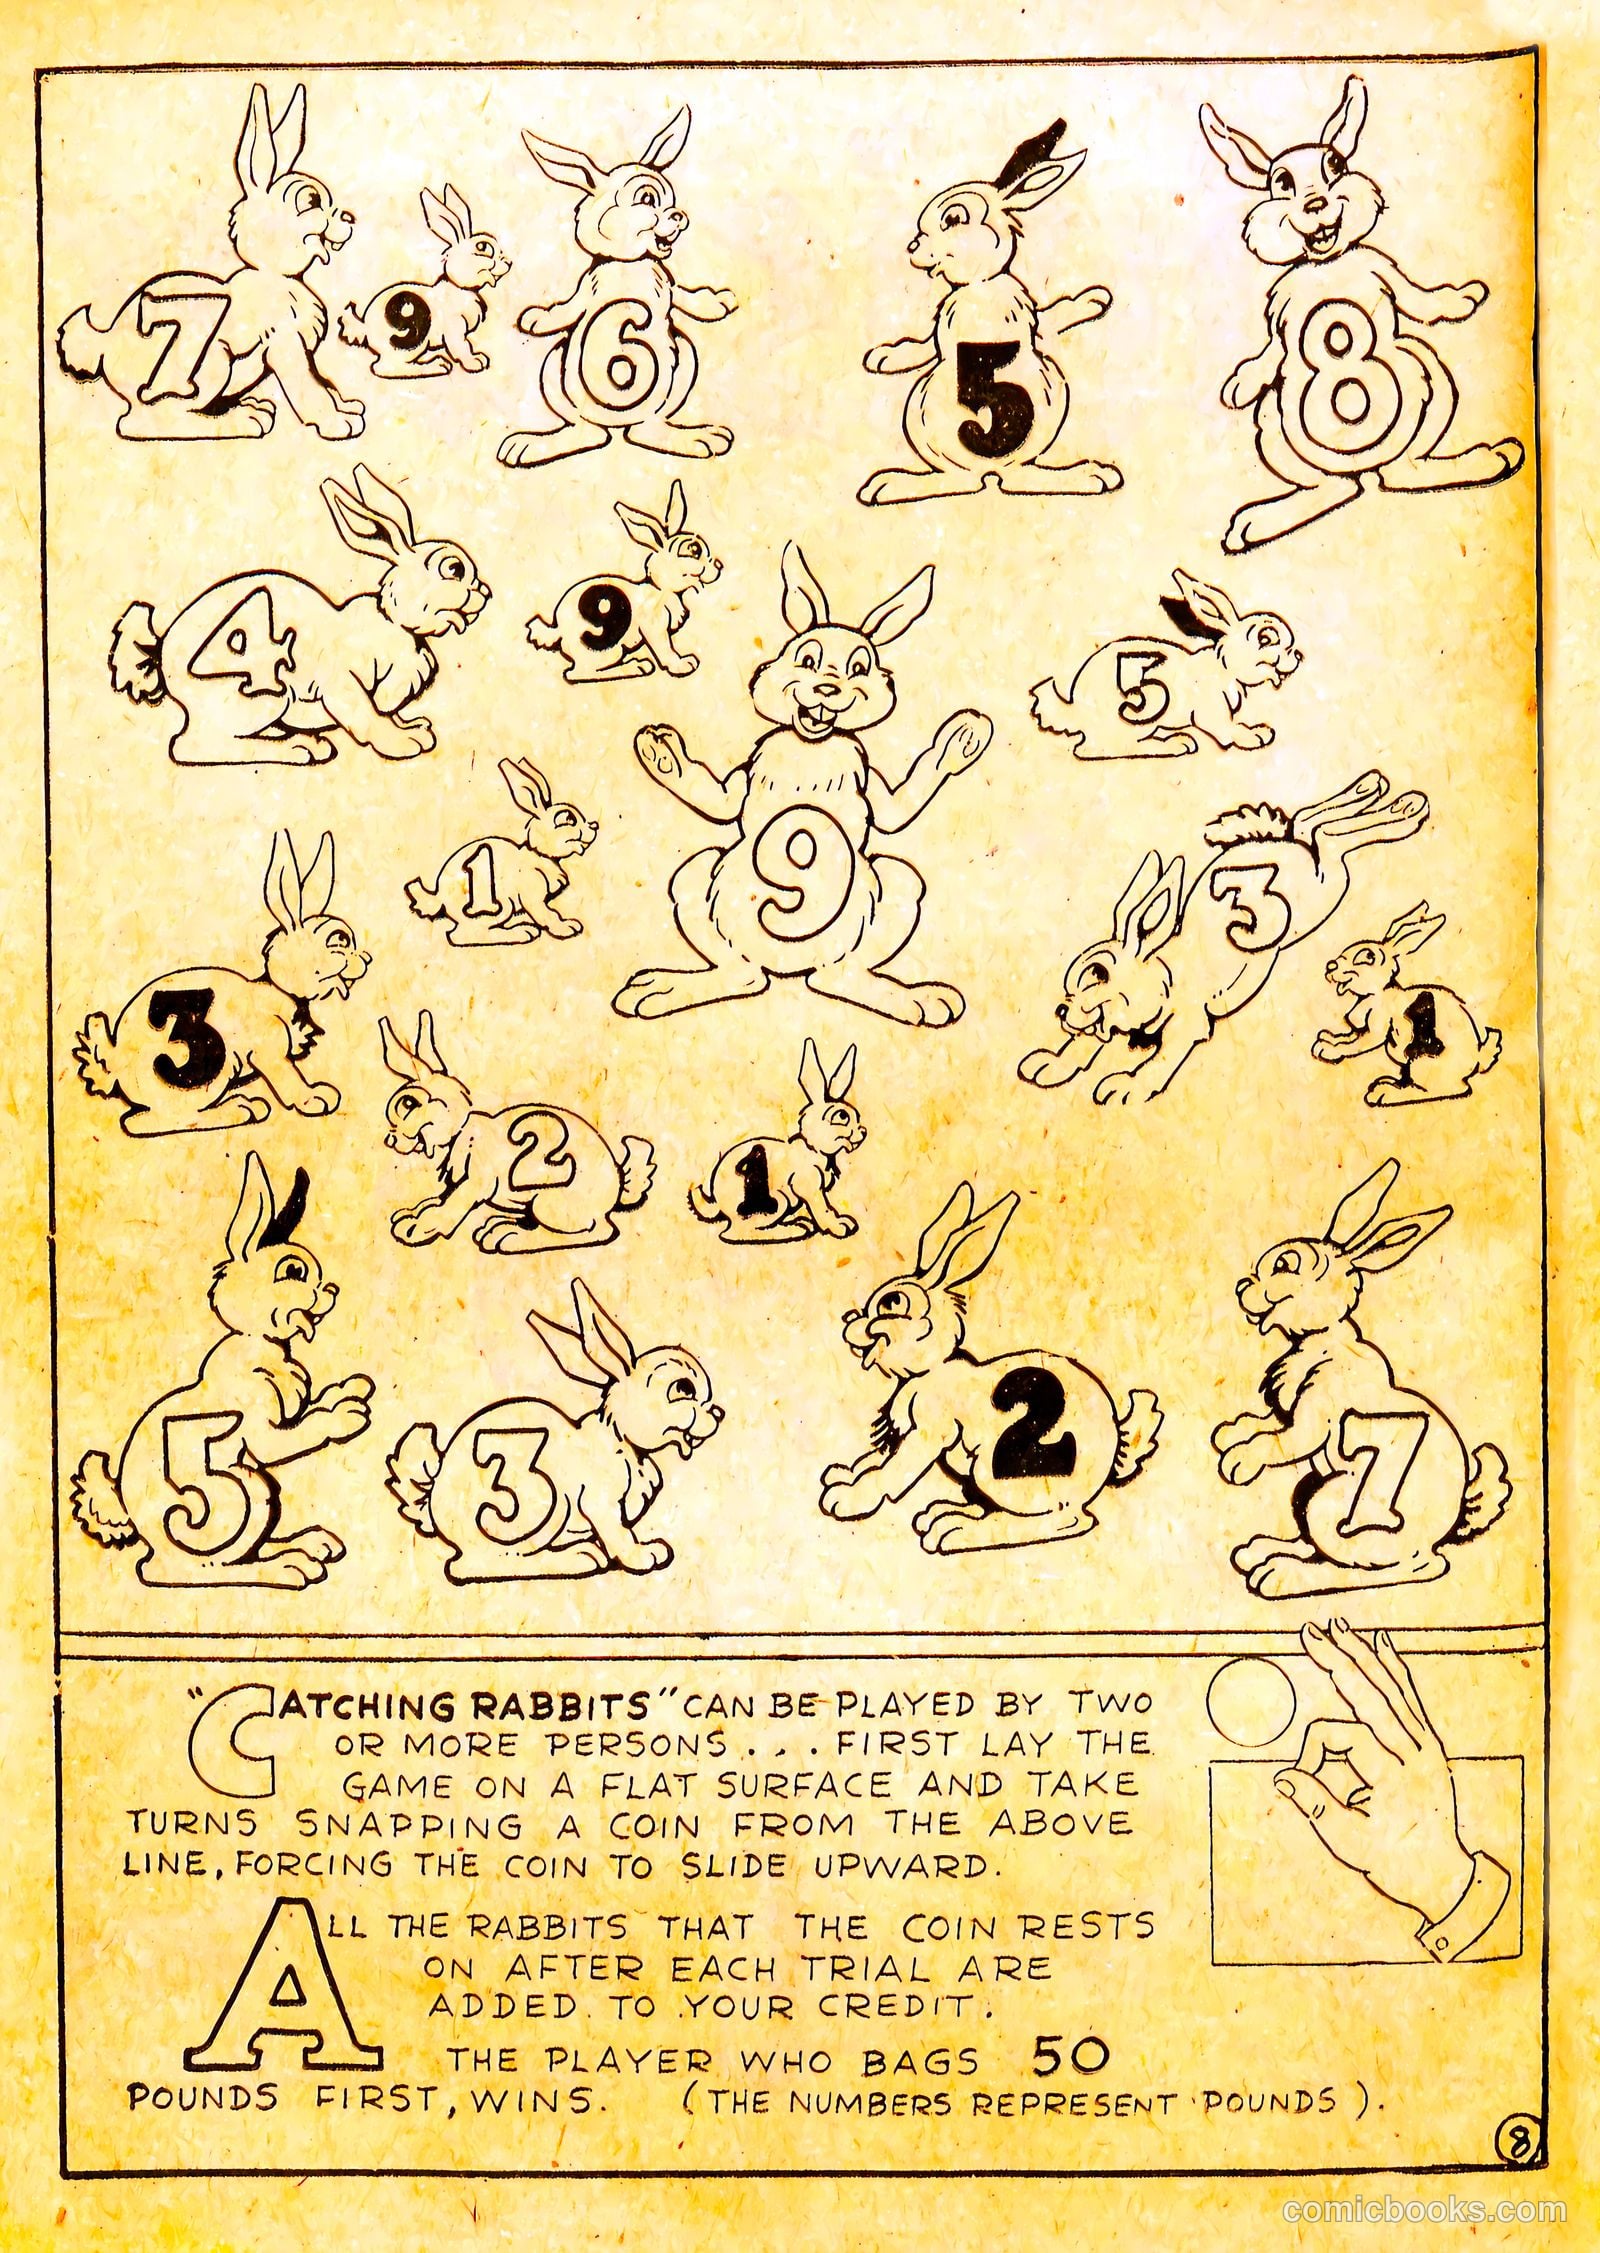 7 9 6 5 8
4 9 9 5
3 1 3 1
2 1
5 3 2 7
"CATCHING RABBITS" CAN BE PLAYED BY TWO
OR MORE PERSONS . . . FIRST LAY THE
GAME ON A FLAT SURFACE AND TAKE
TURNS SNAPPING A COIN FROM THE ABOVE
LINE, FORCING THE COIN TO SLIDE UPWARD.
ALL THE RABBITS THAT THE COIN RESTS
ON AFTER EACH TRIAL ARE
ADDED TO YOUR CREDIT.
THE PLAYER WHO BAGS 50
POUNDS FIRST, WINS. (THE NUMBERS REPRESENT POUNDS).
8
comicbooks.com